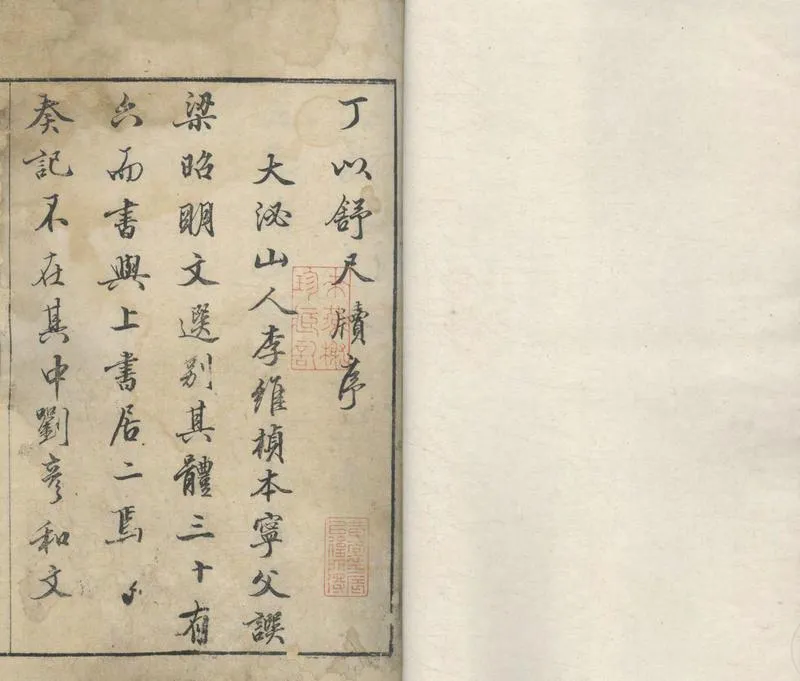 丁以舒尺牘序
大泌山人李維楨本寧父譔
梁昭明文選別其體三十有
六而書與上書居二焉
奏記不在其中劉彥和文